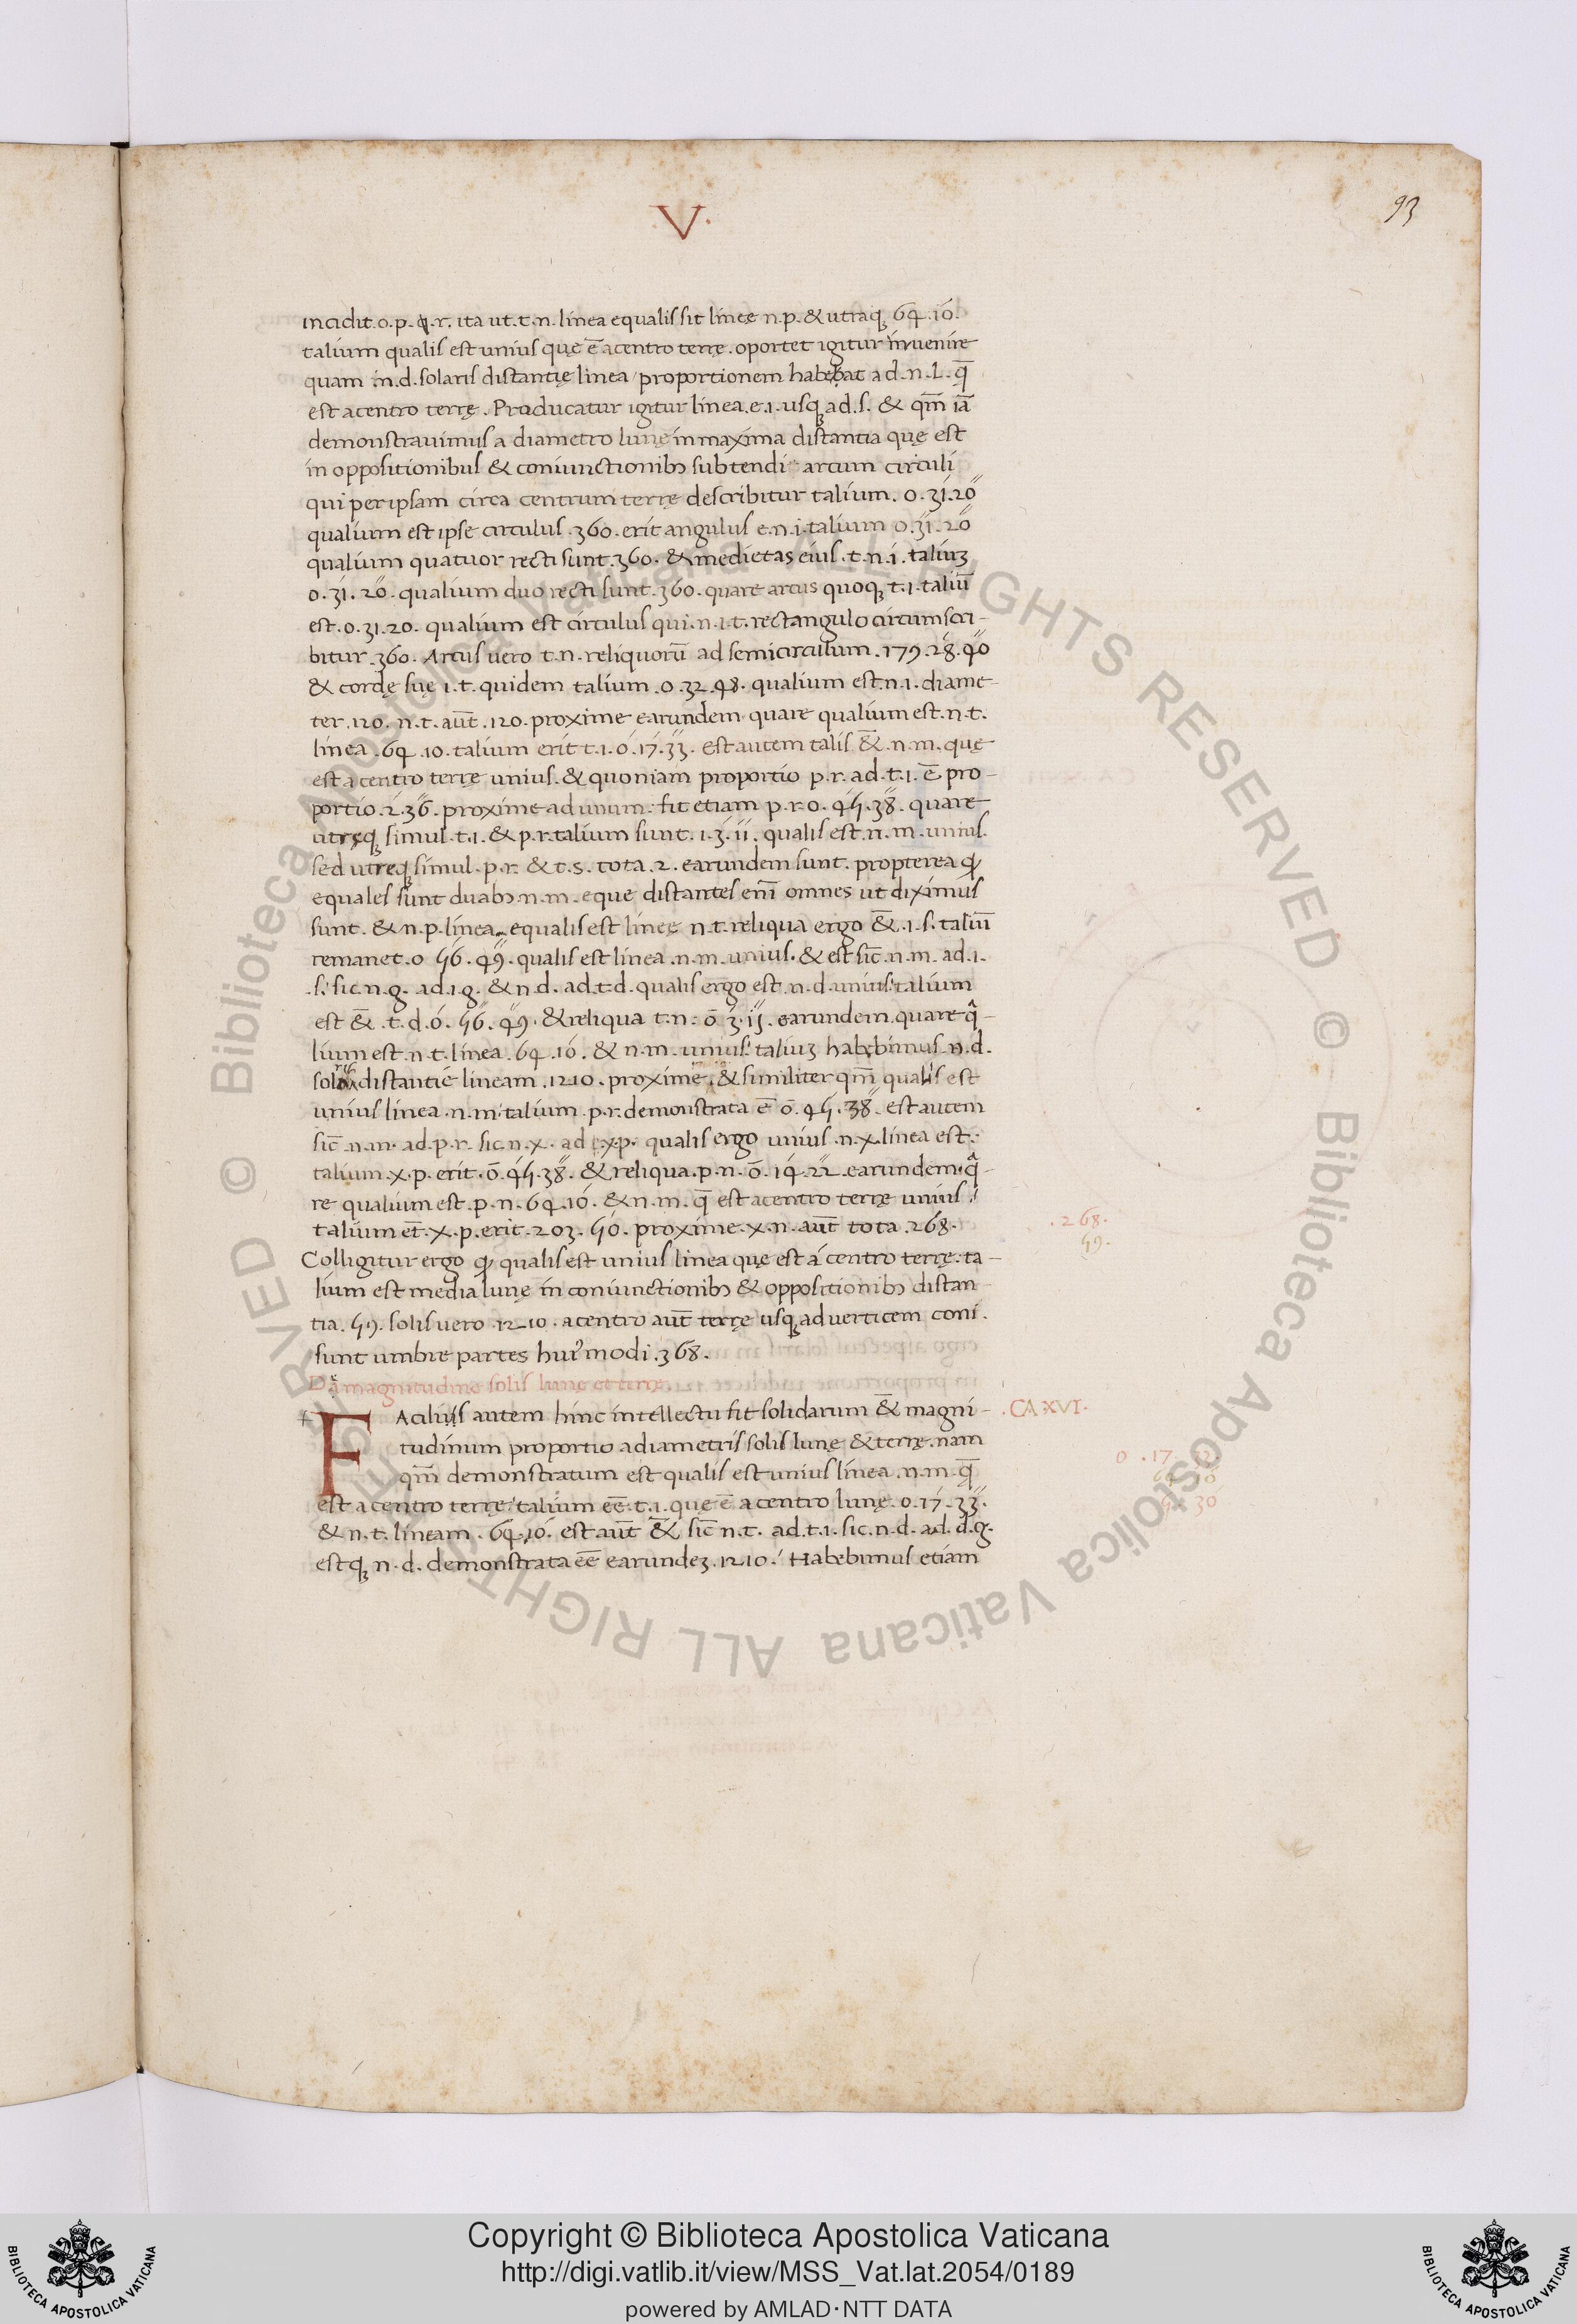 V.
93
incidit .o.p.q.r. ita ut .t.n. linea equalis sit lineę n.p. & utraq; 64.10.
talium qualis est unius que ē a centro terrę. oportet igitur invenire
quam .n.d. solaris distantię linea proportionem habebat ad .n.l. q̄
est a centro terrę. Producatur igitur linea .e.i. usq; ad .s. & qm̄ iā
demonstravimus a diametro lunę in maxima distantia quę est
in oppositionibus & coniunctionibɔ subtendi arcum circuli
qui per ipsam circa centrum terrę describitur talium .0.31.20
qualium est ipse circulus .360. erit angulus e.n.i. talium 0.31.20
qualium quatuor recti sunt .360. & medietas eius .t.n.i. taliuȝ
0.31.20. qualium duo recti sunt .360. quare arcus quoq; t.i. taliū
est .0.31.20. qualium est circulus qui .n.i.t. rectangulo circumscri-
bitur .360. Arcus vero t.n. reliquorū ad semicirculum .179.28.40
& cordę suę i.t. quidem talium .0.32.48. qualium est .n.i. diame-
ter .120. n.t. aūt .120. proxime earundem quare qualium est .n.t.
linea .64.10. talium erit t.i.0.17.33. est autem talis & .n.m. quę
est a centro terrę unius. & quoniam proportio p.r. ad .t.i. ē pro-
portio .2.36. proxime ad unum: fit etiam p.r.0.45.38. quare
utręq; simul .t.i. & p.r. talium sunt .1.3.11. qualis est .n.m. unius.
sed utreq; simul .p.r. & t.s. tota .2. earundem sunt. propterea ꝙ
equales sunt duabɔ .n.m. eque distantes eni͞ omnes ut diximus
sunt. & n.p. linea equalis est lineę n.t. reliqua ergo & .i.s. taliū
remanet .0 56.49. qualis est linea .n.m. unius. & est sic̄ .n.m. ad .i.
.s. sic n.g. ad .i.g. & n.d. ad .t.d. qualis ergo est .n.d. unius talium
est & .t.d.0.56.49. & reliqua t.n. 0.3.11. earundem quare qᵃ-
lium est .n.t. linea .64.10. & n.m. unius talium habebimus .n.d.
solaris distantię lineam .1210. proxime & similiter qm̄ qualis est
unius linea .n.m. talium .p.r. demonstrata ē 0.45.38. est autem
sic̄ .n.m. ad .p.r. sic .n.x. ad .x.p. qualis ergo unius .n.x. linea est:
talium .x.p. erit .0.45.38. & reliqua .p.n. 0.14.22. earundem. qᵃ-
re qualium est .p.n. 64.10. & n.m. q̄ est a centro terrę unius:
talium et̄ .x.p. erit .203.50. proxime .x.n. aūt tota .268.
Colligitur ergo ꝙ qualis est unius linea quę est a centro terrę. ta-
lium est media lunę in coniunctionibɔ & oppositionibɔ distan
tia .59. solis vero .1210. a centro aūt terrę usq; ad verticem coni.
sunt umbre partes huiꝰmodi .368.
De magnitudine solis lunę et terrę
FAcilius autem hinc intellectu fit solidarum & magni-
tudinum proportio a diametris solis lunę & terrę. nam
qm̄ demonstratum est qualis est unius linea .n.m. q̄
est a centro terrę talium eē .t.i. quę ē a centro lunę .0.17.33.
& n.t. lineam .64.10. est aūt & sic̄ n.t. ad .t.i. sic .n.d. ad .d.g.
estq; n.d. demonstrata eē earundeȝ .1210. Habebimus etiam
.268.
59.
.CA XVI.
Copyright © Biblioteca Apostolica Vaticana
http://digi.vatlib.it/view/MSS_Vat.lat.2054/0189
powered by AMLAD·NTT DATA